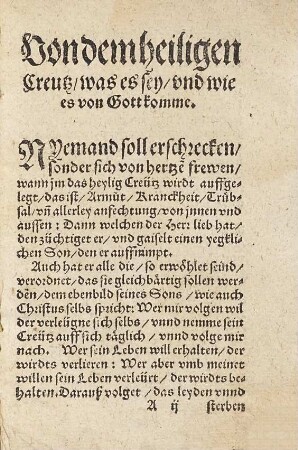 Von dem heiligen
Creutz/ was es sey/ vnd wie
es von Gott komme.
NYemand soll erschrecken/
sonder sich von hertzẽ frewen/
wann jm das heylig Creütz wirdt auffge-
legt/ das ist/ Armüt/ Kranckheit/ Trüb-
sal/ vñ allerley anfechtung/ von jnnen vnd
aussen: Dann welchen der Her: lieb hat/
den züchtiget er/ vnd gaiselt einen yegkli-
chen Son/ den er auffnimpt.
Auch hat er alle die/ so erwöhlet seind/
verordnet/ das sie gleichbärtig sollen wer-
den/ dem ebenbild seines Sons/ wie auch
Christus selbs spricht: Wer mir volgen wil
der verleügne sich selbs/ vnnd nemme sein
Creütz auff sich täglich/ vnnd volge mir
nach. Wer sein Leben will erhalten/ der
wirdts verlieren: Wer aber vmb meinet
willen sein Leben verleürt/ der wirdts be-
halten. Darauß volget/ das leyden vnnd
A ij sterben